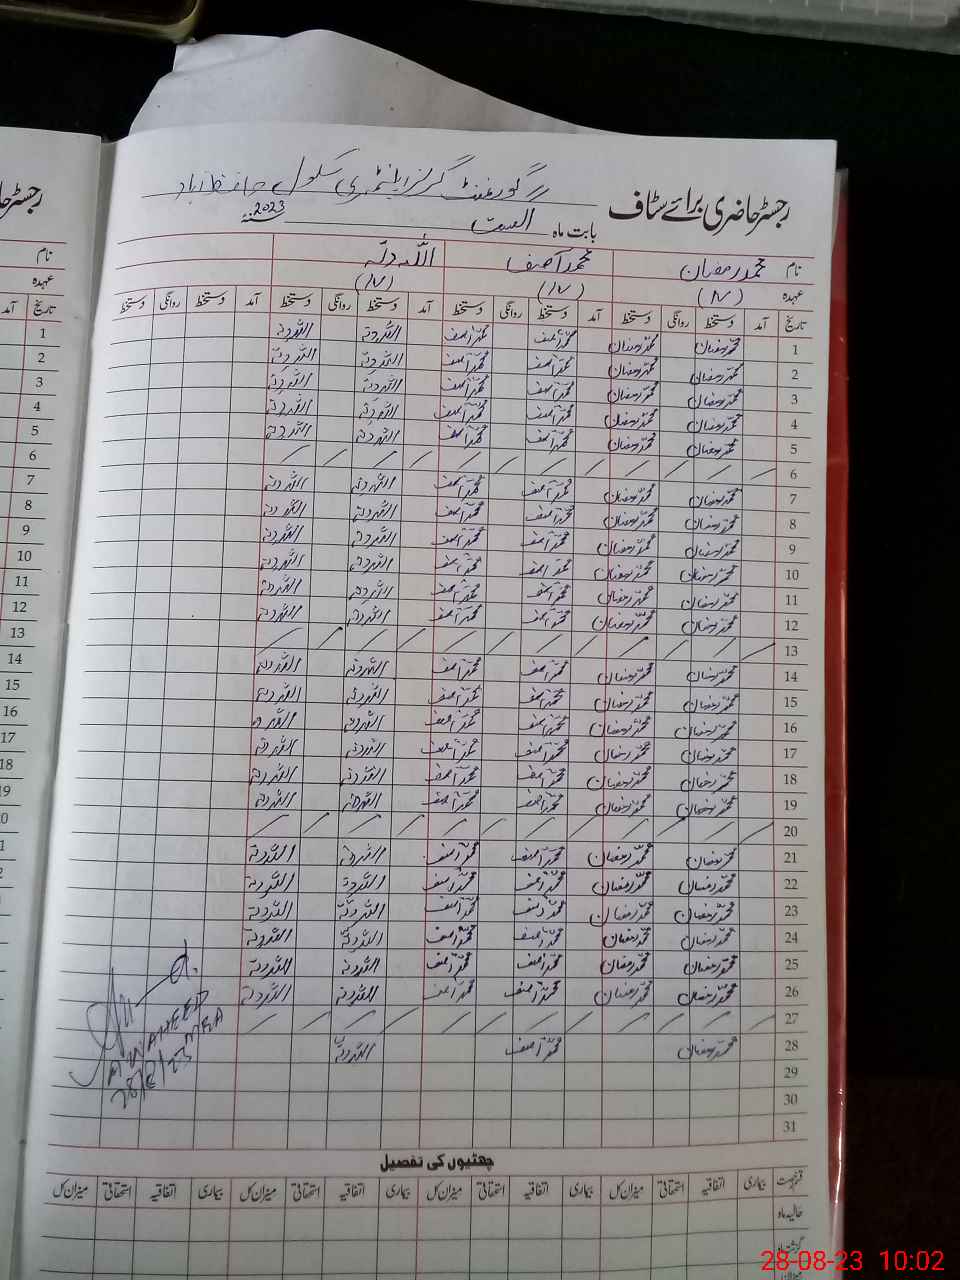 رجسٹر حاضری برائے سٹاف گورنمنٹ گرلز ایلیمنٹری سکول حافظ آباد
بابت ماہ اگست 2023ء
نام محمد رمضان محمد آصف اللہ دتہ
عہدہ (IV) (IV) (IV)
تاریخ آمد دستخط روانگی دستخط آمد دستخط روانگی دستخط آمد دستخط روانگی دستخط آمد دستخط روانگی دستخط
1 محمد رمضان محمد رمضان محمد آصف محمد آصف اللہ دتہ اللہ دتہ
2 محمد رمضان محمد رمضان محمد آصف محمد آصف اللہ دتہ اللہ دتہ
3 محمد رمضان محمد رمضان محمد آصف محمد آصف اللہ دتہ اللہ دتہ
4 محمد رمضان محمد رمضان محمد آصف محمد آصف اللہ دتہ اللہ دتہ
5 محمد رمضان محمد رمضان محمد آصف محمد آصف اللہ دتہ اللہ دتہ
6 / / / / / / / / / / / /
7 محمد رمضان محمد رمضان محمد آصف محمد آصف اللہ دتہ اللہ دتہ
8 محمد رمضان محمد رمضان محمد آصف محمد آصف اللہ دتہ اللہ دتہ
9 محمد رمضان محمد رمضان محمد آصف محمد آصف اللہ دتہ اللہ دتہ
10 محمد رمضان محمد رمضان محمد آصف محمد آصف اللہ دتہ اللہ دتہ
11 محمد رمضان محمد رمضان محمد آصف محمد آصف اللہ دتہ اللہ دتہ
12 محمد رمضان محمد رمضان محمد آصف محمد آصف اللہ دتہ اللہ دتہ
13 / / / / / / / / / / / /
14 محمد رمضان محمد رمضان محمد آصف محمد آصف اللہ دتہ اللہ دتہ
15 محمد رمضان محمد رمضان محمد آصف محمد آصف اللہ دتہ اللہ دتہ
16 محمد رمضان محمد رمضان محمد آصف محمد آصف اللہ دتہ اللہ دتہ
17 محمد رمضان محمد رمضان محمد آصف محمد آصف اللہ دتہ اللہ دتہ
18 محمد رمضان محمد رمضان محمد آصف محمد آصف اللہ دتہ اللہ دتہ
19 محمد رمضان محمد رمضان محمد آصف محمد آصف اللہ دتہ اللہ دتہ
20 / / / / / / / / / / / /
21 محمد رمضان محمد رمضان محمد آصف محمد آصف اللہ دتہ اللہ دتہ
22 محمد رمضان محمد رمضان محمد آصف محمد آصف اللہ دتہ اللہ دتہ
23 محمد رمضان محمد رمضان محمد آصف محمد آصف اللہ دتہ اللہ دتہ
24 محمد رمضان محمد رمضان محمد آصف محمد آصف اللہ دتہ اللہ دتہ
25 محمد رمضان محمد رمضان محمد آصف محمد آصف اللہ دتہ اللہ دتہ
26 محمد رمضان محمد رمضان محمد آصف محمد آصف اللہ دتہ اللہ دتہ
27 / / / / / / / / / / / /
28 محمد رمضان محمد آصف اللہ دتہ
29
30
31
M WAHEED
MEA
28/8/23
چھٹیوں کی تفصیل
قسم رخصت بیماری اتفاقیہ استحقاقی میزان کل بیماری اتفاقیہ استحقاقی میزان کل بیماری اتفاقیہ استحقاقی میزان کل بیماری اتفاقیہ استحقاقی میزان کل
حالیہ ماہ
گزشتہ ماہ
رجسٹر حا
نام
عہدہ
تاریخ آمد
1
2
3
4
5
6
7
8
9
10
11
12
13
14
15
16
17
18
19
28-08-23 10:02